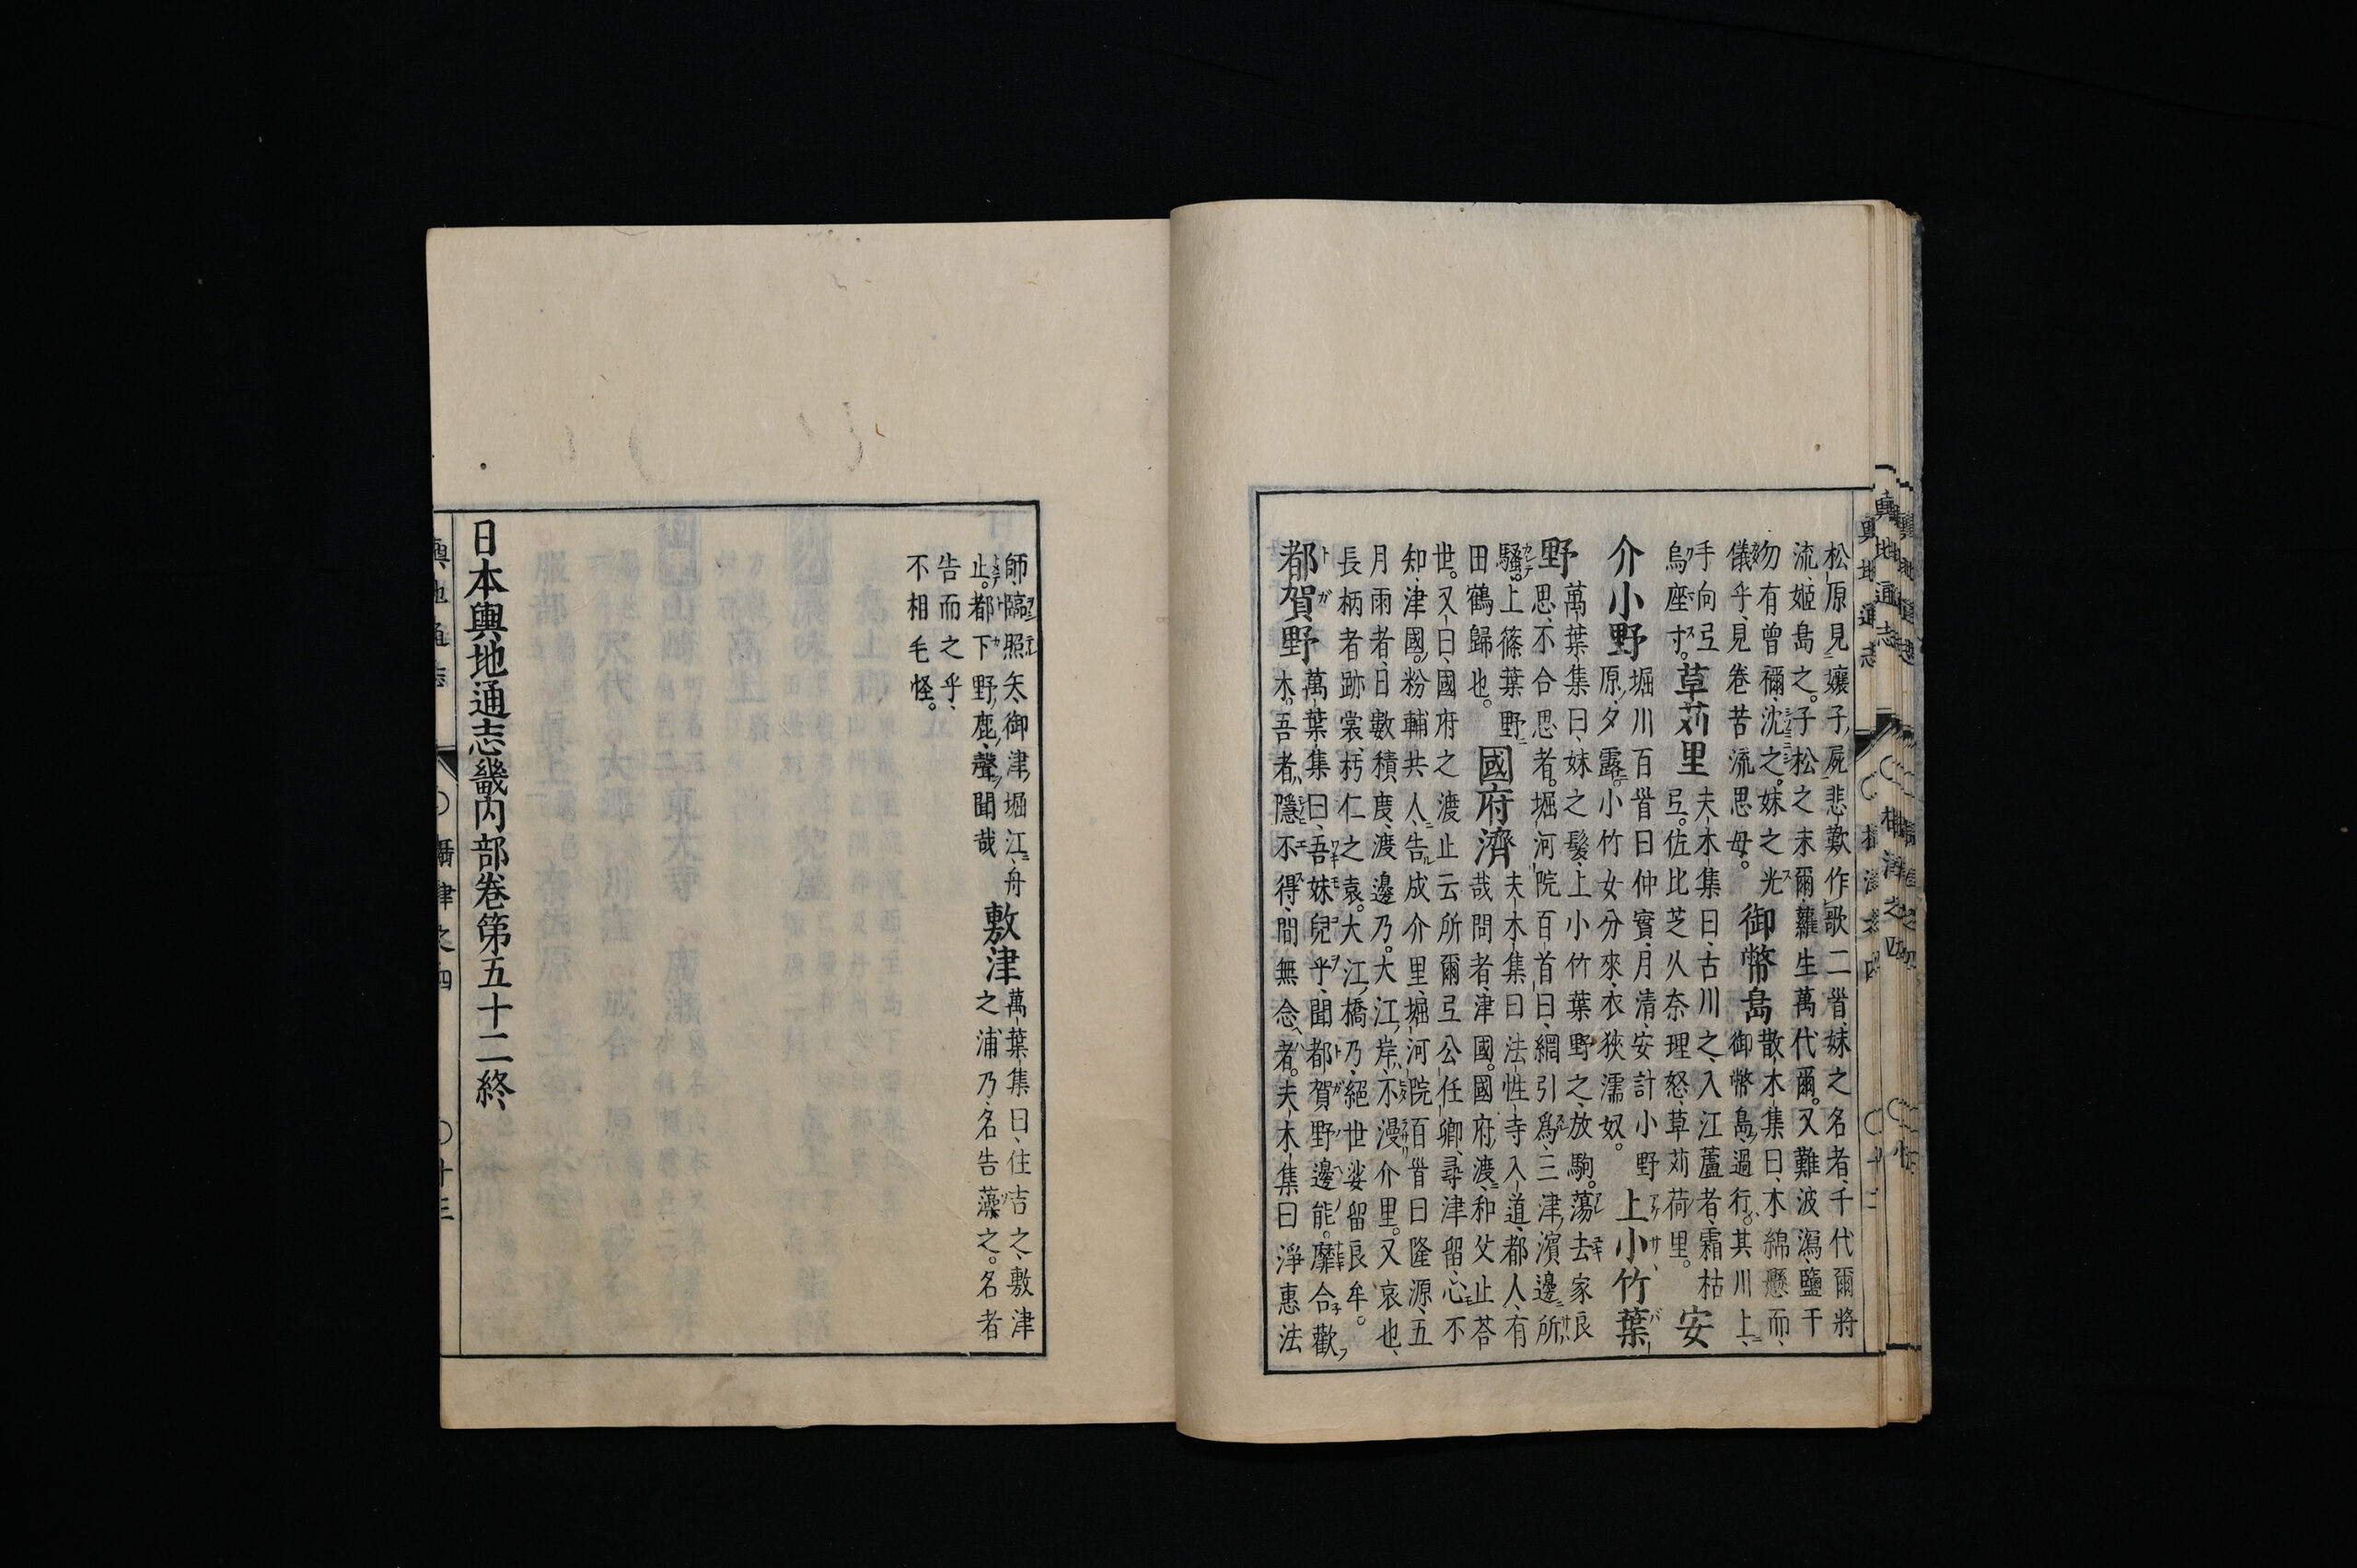 松原見孃子屍悲歎作歌二首妹之名者千代爾將
流姬島之子松之末爾蘿生萬代爾又難波瀉鹽干
勿有曾禰沈之妹之光
儀乎見卷苦流思母
御幣島
散木集曰木綿懸而
御幣島過行其川上
手向弖
烏座寸
草苅里
夫木集曰古川之入江蘆者霜枯
弖佐比芝从奈理怒草苅荷里
安
介小野
堀川百首曰仲實月清安計小野
原夕露小竹女分來衣狹濡奴
上小竹葉
野
萬葉集曰妹之髮上小竹葉野之放駒蕩去家良
思不合思者堀河院百首曰網引為三津濱邊所
騷上篠葉野
田鶴歸也
國府濟
夫木集曰法性寺入道都人有
哉問者津國國府渡和父止荅
世又曰國府之渡止云所爾弖公任卿尋津留心不
知津國粉輔共人告成介里堀河院百首曰隆源五
月雨者日數積度渡邊乃大江岸不漫介里又哀也
長柄者跡裳朽仁之袁大江橋乃絕世娑留良牟
都賀野
萬葉集曰吾妹兒乎聞都賀野邊能靡合歡
木吾者隱不得間無念者夫木集曰淨惠法
師臨照矢御津堀江舟
止都下野鹿聲聞哉
敷津
萬葉集曰住吉之敷津
之浦乃名告藻之名者
告而之乎
不相毛怪
日本輿地通志畿内部卷第五十二終
輿地通志 攝津之四 十三